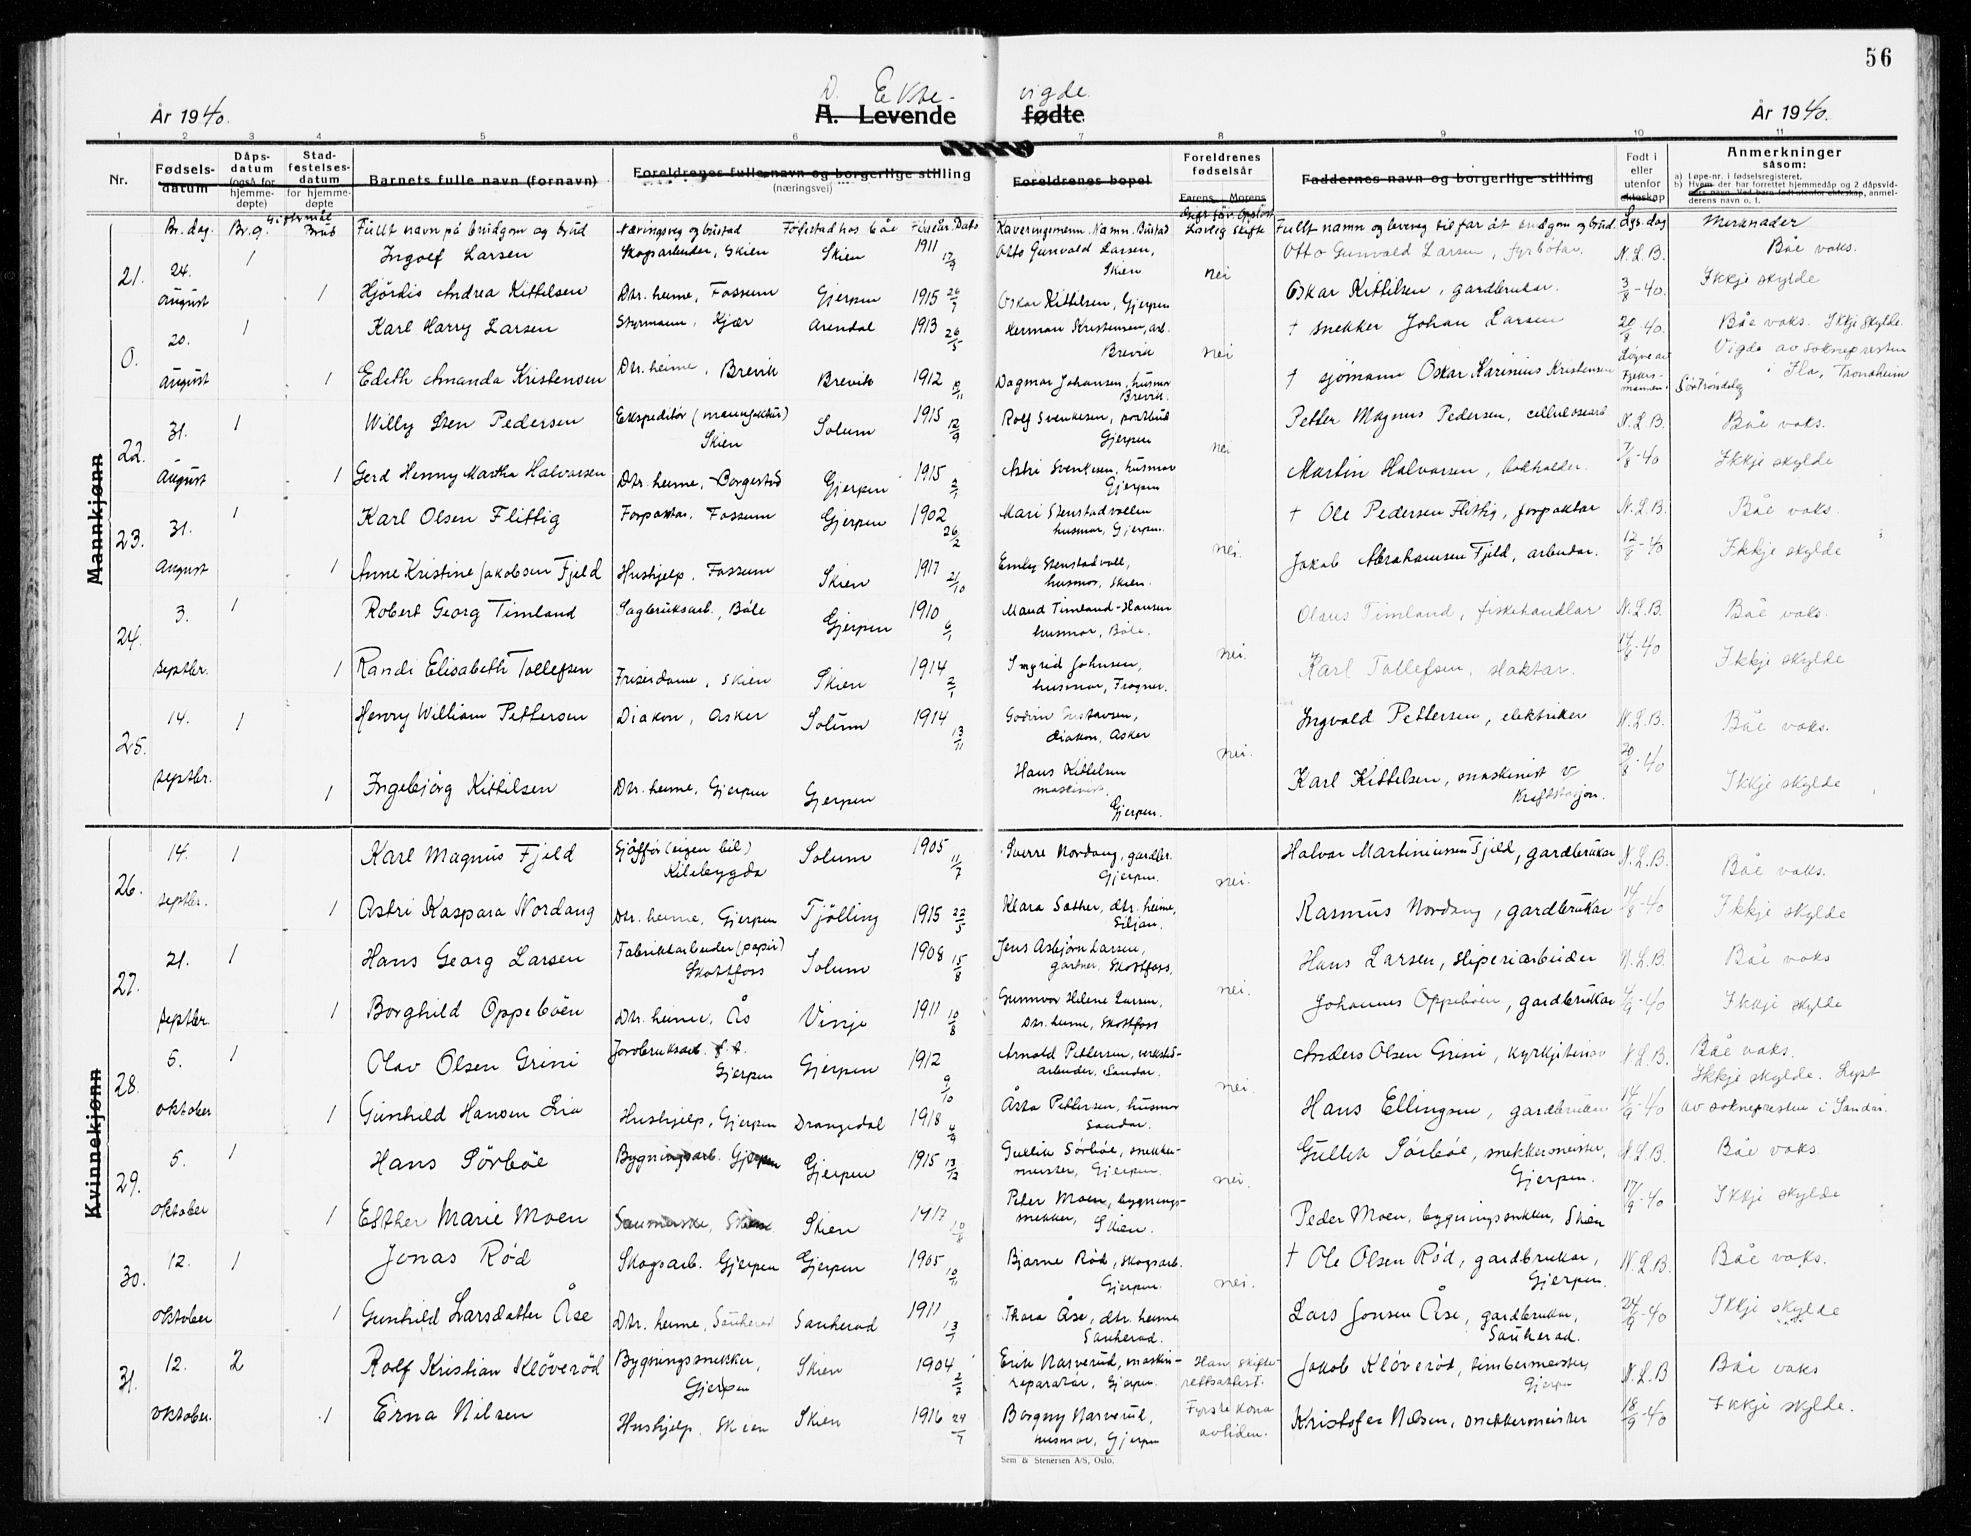 56
År 1940.
D. Ekte-
vigde.
A. Levende
fødte
År 1940.
1 2 3 4 5 6 7 8 9 10 11
Nr.
Fødsels-
datum
Dåps-
datum
(også for
hjemme-
døpte)
Stad-
festelses-
datum
for hjemme-
døpte
Barnets fulle navn (fornavn)
Foreldrenes fulle navn og borgerlige stilling
(næringsvei)
Foreldrenes bopel
Foreldrenes
fødselsår
Farens Morens
Faddernes navn og borgerlige stilling
Født i
eller
utenfor
ekteskap
Anmerkninger
såsom:
a) Løpe-nr. i fødselsregisteret.
b) Hvem der har forrettet hjemmedåp og 2 dåpsvid-
ners navn. Ved barn født utenfor ekteskap, anmel-
derens navn o. l.
Mannkjønn
Kvinnekjønn
Br. dag. Br.g. Giftermål Brud Fullt navn på brudgom og brud Næringsveg og bustad Fødestad hos båe Føds.år. Dato
Kaveringsmenn. Namn. Bustad Fullt namn og leveveg til far åt brudgom og brud. Lys. dag Merknader
21. 24. 1 Ingolf Larsen Skogsarbeider, Skien Skien 1911 17/9 Otto Gunvald Larsen, Skien nei Otto Gunvald Larsen, fyrbøtar. N.L.B. Båe vaks.
august 1 Hjördis Andrea Kittilsen Dtr. heime, Fossum Gjerpen 1915 26/7 Oskar Kittilsen, Gjerpen Oskar Kittilsen, gardbrukar. 3/8-40. Ikkje skylde
0. 20. 1 Karl Harry Larsen Styrmann, Kjær Arendal 1913 26/5 Herman Kristensen, arb. Brevik nei † snekker Johan Larsen 20/8-40. Båe vaks. Ikkje skylde.
august 1 Edith Amanda Kristensen Dtr. heime, Brevik Brevik 1912 8/11 Dagmar Johansen, husmor Brevik. † sjømann Oskar Karinius Kristensen Vigde av soknepresten i Ila, Trondheim
22. 31. 1 Willy Sten Pedersen Ekspeditör (manufaktur) Skien Solum 1915 12/9 Rolf Svenkesen, postbud Gjerpen nei Petter Magnus Pedersen, cellulosearb N.L.B. Båe vaks.
august 1 Gerd Henny Martha Halvorsen Dtr. heime, Borgestad Gjerpen 1915 2/1 Astri Svenkesen, husmor Gjerpen Martin Halvorsen, bokholder. 7/8-40 Ikkje skylde
23. 31. 1 Karl Olsen Flittig Forpaktar, Fossum Gjerpen 1902 26/2 Mari Stenstadvollen husmor, Gjerpen. nei. † Ole Pedersen Flittig, forpaktar N.L.B. Båe vaks.
august 1 Anne Kristine Jakobsen Fjeld Hushjelp, Fossum Skien 1917 21/10 Emly Stenstadvoll, husmor, Skien. Jakob Abrahamsen Fjeld, arbeidar. 12/8-40 Ikkje skylde
24. 3. 1 Robert Georg Timland Sagbruksarb., Böle Gjerpen 1910 6/1 Maud Timland-Hansen husmor, Böle. nei. Olaus Timland, fiskehandlar N.L.B. Båe vaks.
septbr. 1 Randi Elisabeth Tollefsen Friserdame, Skien Skien 1914 2/1 Ingrid Johnsen, husmor, Frogner. Karl Tollefsen, slaktar. 14/8-40 Ikkje skylde
25. 14. 1 Henry William Pettersen Diakon, Asker Solum 1914 13/11 Godvin Gustavsen, diakon, Asker nei. Ingvald Pettersen, elektriker N.L.B. Båe vaks.
septbr. 1 Ingebjörg Kittilsen Dtr. heime, Gjerpen Gjerpen Hans Kittelsen maskinist. Gjerpen. Karl Kittelsen, maskinist v/ kraftstasjon. 20/8-40 Ikkje skylde
26. 14. 1 Karl Magnus Fjeld Sjåffør (eigen bil) Kilebygda Solum 1905 11/7 Sverre Nordang, gardbr. Gjerpen. nei. Halvor Martiniussen Fjeld, gardbrukar N.L.B. Båe vaks.
septbr. 1 Astri Kaspara Nordang Dtr. heime, Gjerpen Tjölling 1915 22/5 Klara Sæther, dtr. heime, Siljan. Rasmus Nordang, gardbrukar 14/8-40 Ikkje skylde
27. 21. 1 Hans Georg Larsen Fabrikkarbeider (papir) Skotfoss Solum 1908 15/8 Jens Asbjørn Larsen, gartner, Skotfoss. nei. Hans Larsen, sliperiarbeider N.L.B. Båe vaks
septbr. 1 Borghild Oppeböen Dtr. heime, Ås Vinje 1911 10/8 Gunnvor Helene Larsen, Dtr. heime, Skotfoss Johannes Oppeböen, gardbrukar 4/9-40 Ikkje skylde
28. 5. 1 Olav Olsen Grini Jordbruksarb. Gjerpen Gjerpen 1912 9/10 Arnold Pettersen, verksted-arbeider, Sandar. nei. Anders Olsen Grini, kyrkjetenar N.L.B. Båe vaks.
oktober 1 Gunhild Hansen Lia Hushjelp, Gjerpen Drangedal 1918 4/9 Åsta Pettersen, husmor Sandar. Hans Ellingsen, gardbrukar 14/9-40 Ikkje skylde. Lyst av soknepresten i Sandar.
29. 5. 1 Hans Sörböe Bygningsarb. Gjerpen Gjerpen 1915 13/12 Gullik Sörböe, snekker-meister, Gjerpen. nei. Gullik Sörböe, snekkermeister, Gjerpen. N.L.B. Båe vaks.
oktober 1 Esther Marie Moen Saumerske, Skien Skien 1917 10/8 Peter Moen, bygnings-snekker, Skien. Peder Moen, bygningsnekker, Skien 17/9-40 Ikkje skylde
30. 12. 1 Jonas Rød Skogsarb. Gjerpen Gjerpen 1905 10/11 Bjarne Rød, skogsarb. Gjerpen. nei. † Ole Olsen Rød, gardbrukar, Gjerpen. N.L.B. Båe vaks.
oktober 1 Gunhild Larsdatter Åse Dtr. heime, Sauherad Sauherad 1911 13/7 Thora Åse, dtr. heime Sauherad. Lars Jonsen Åse, gardbrukar, Sauherad. 24/9-40 Ikkje skylde
31. 12. 2 Rolf Kristian Klöveröd Bygningssnekker, Gjerpen Skien 1904 2/2 Erik Narverud, maskin-reparatør, Gjerpen. Han skifte-rettsattest. Jakob Klöveröd, timbermeister, Gjerpen N.L.B Båe vaks
oktober. 1 Erna Nilsen Hushjelp, Skien Skien 1916 24/7 Borgny Narverud, husmor, Gjerpen Fyrste kona avliden. Kristofer Nilsen, snekkermeister 18/9-40 Ikkje skylde.
Sem & Stenersen A/S, Oslo.